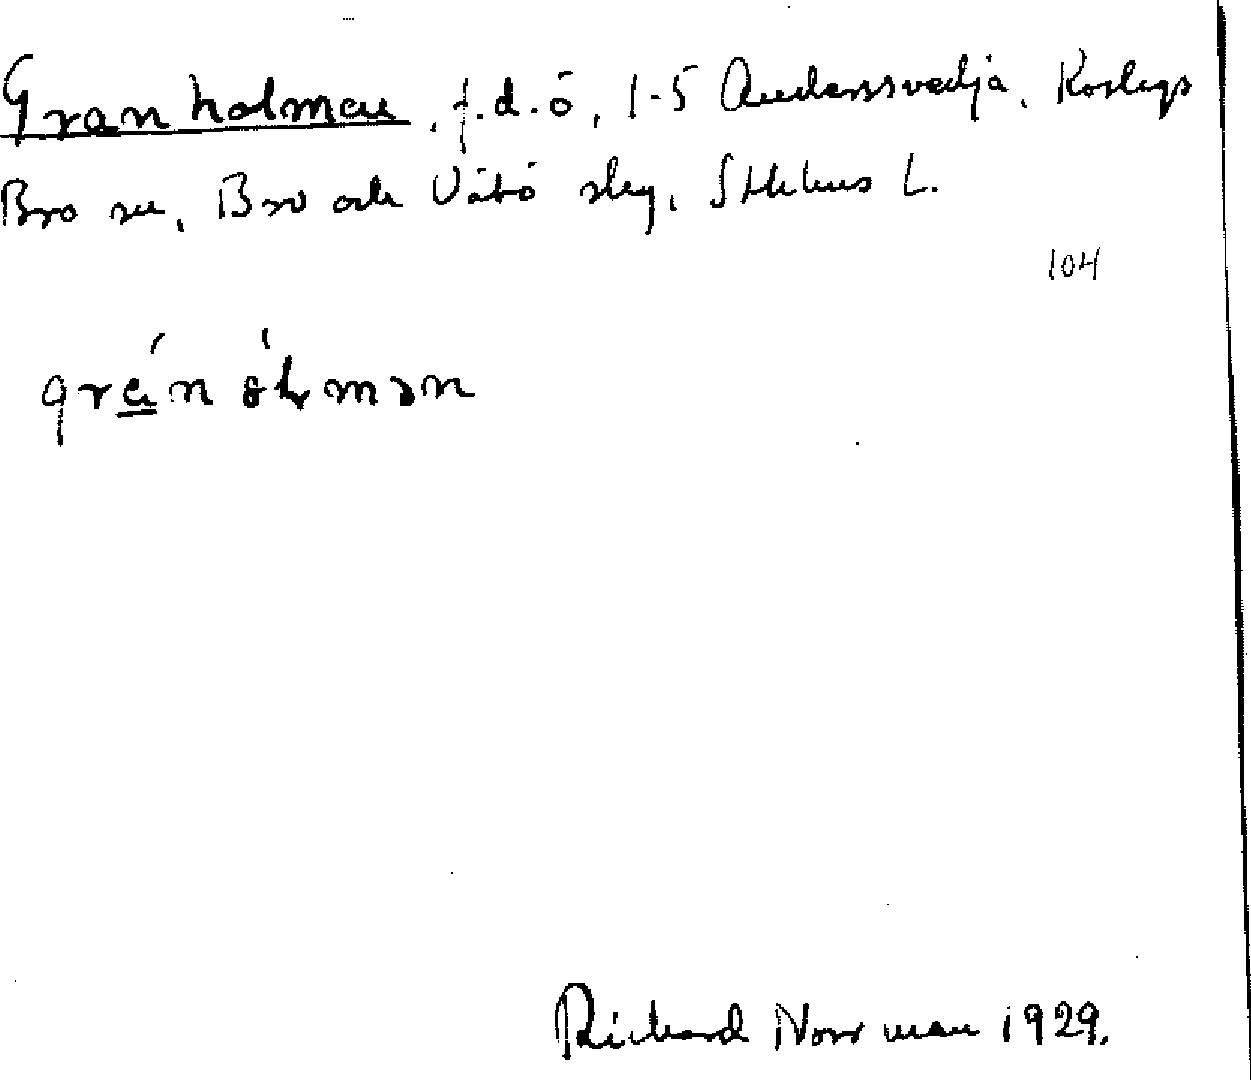 Granholmen, f.d. ö, 1-5 Anderssvedja, Roslags
Bro sn, Bro och Vätö skg, Sthlms L.
104
Richard Norrman 1929.